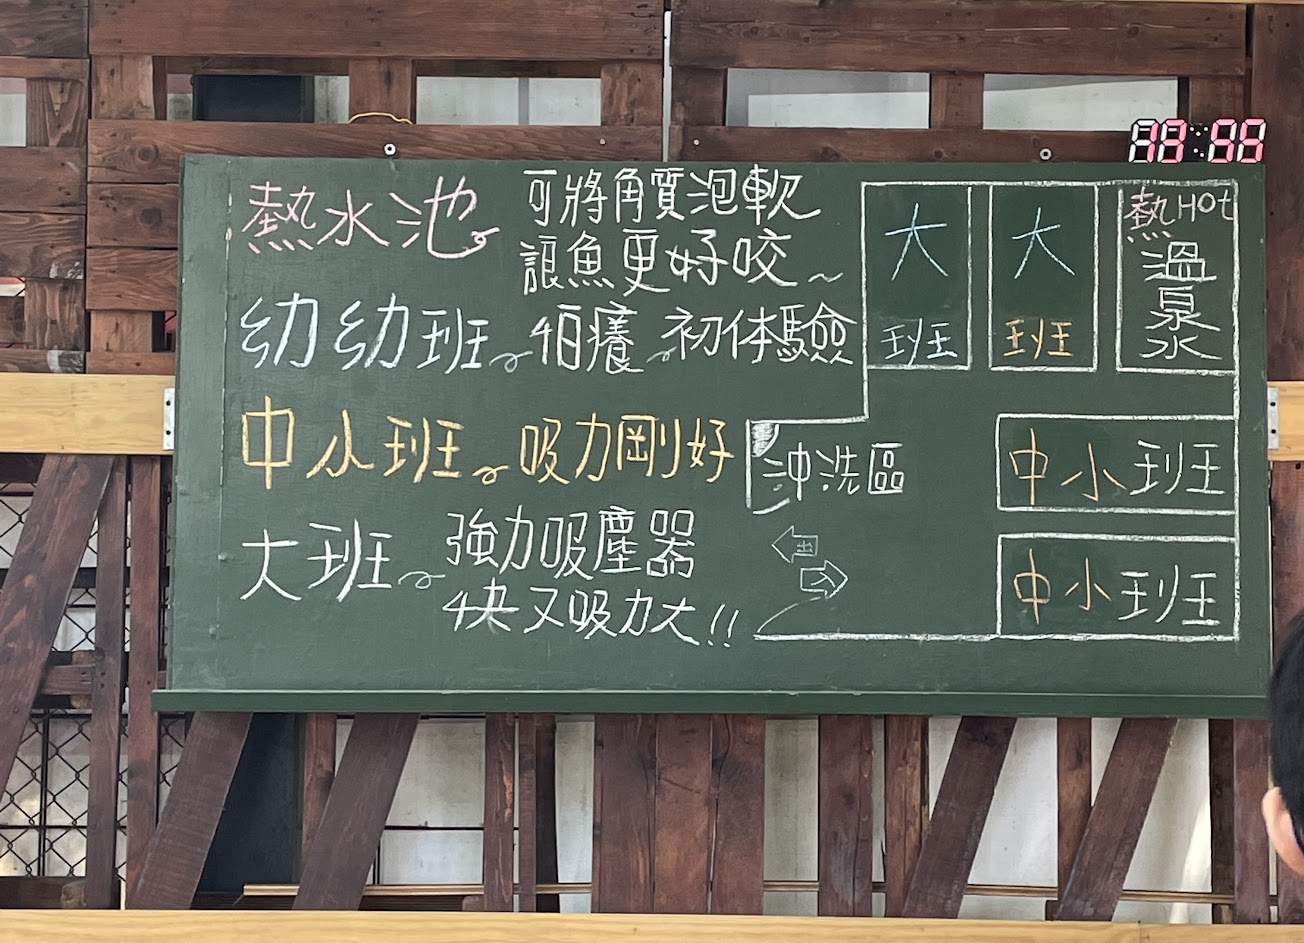 熱水池 可將角質泡軟
讓魚更好咬~
幼幼班 怕癢 初体驗
中小班 吸力剛好
大班 強力吸塵器
快又吸力大!!
大班
大班
熱Hot
溫泉水
沖洗區
中小班
中小班